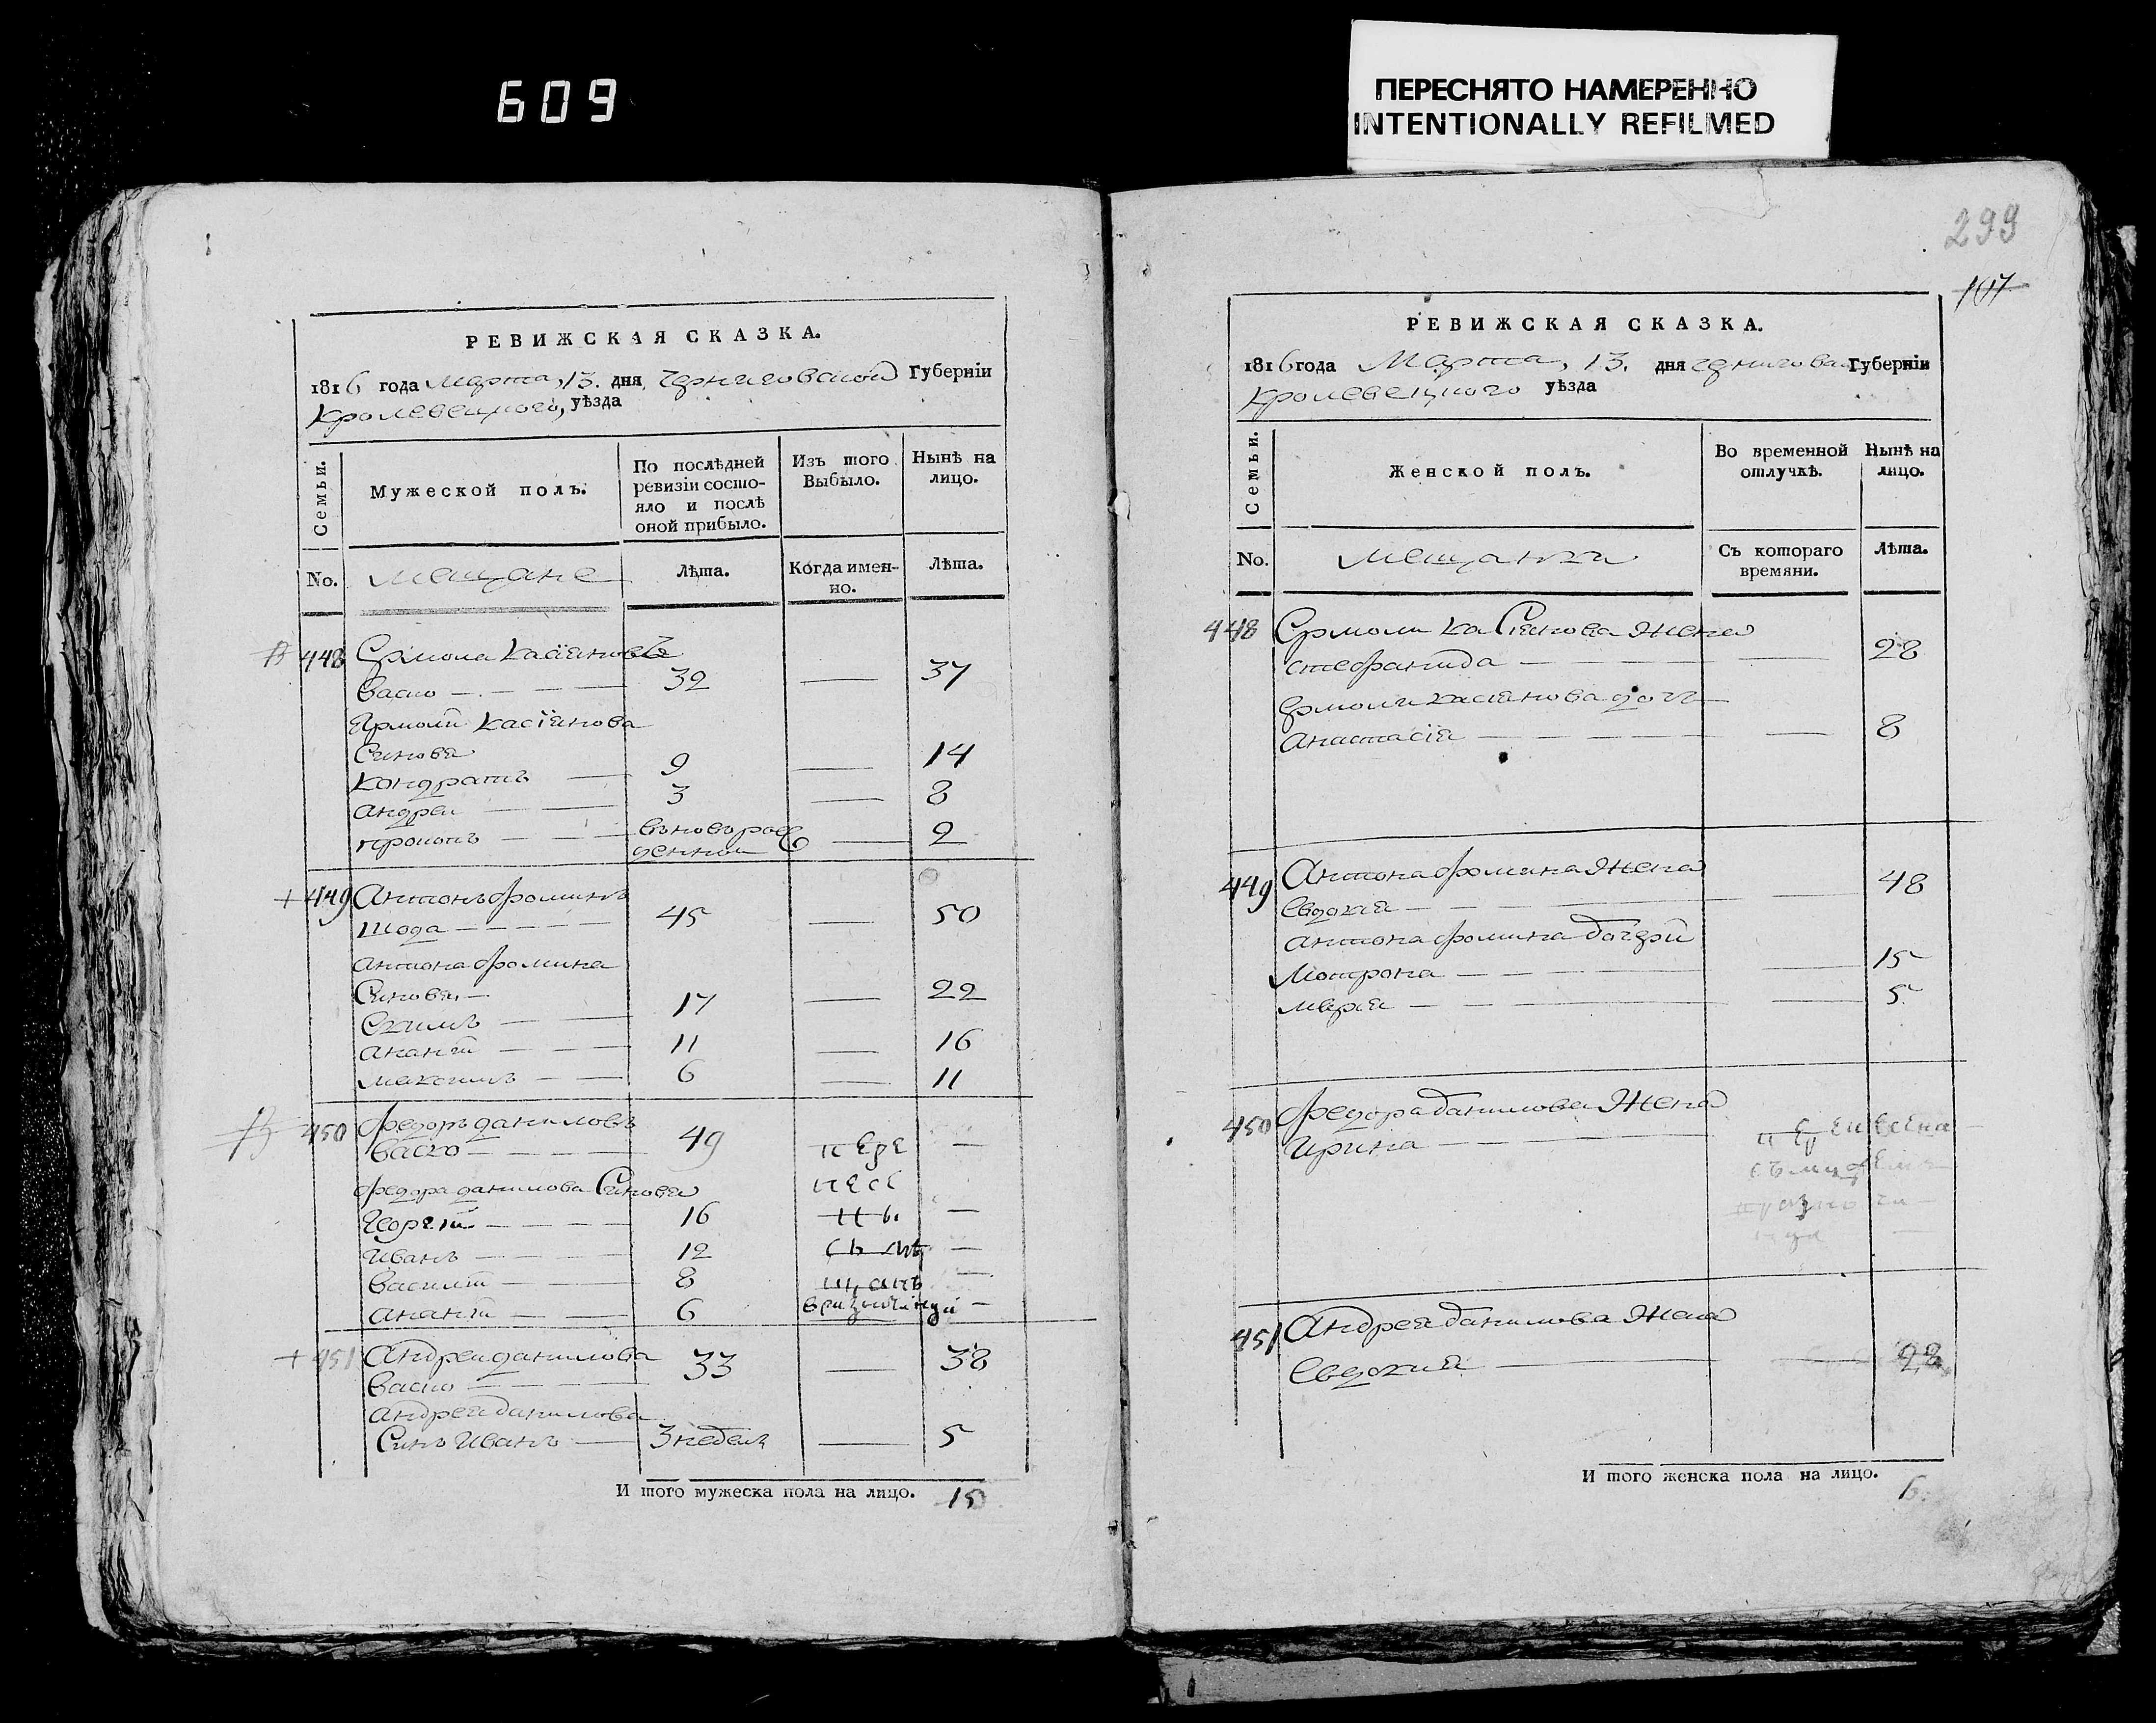 609
ПЕРЕСНЯТО НАМЕРЕННО
INTENTIONALLY REFILMED
РЕВИЖСКАЯ СКАЗКА.
1816 года Марта, 13. дня, Черниговской Губерніи
Кролевецкого, уѣзда
Семьи.
Мужеской полъ.
По послѣдней ревизіи состояло и послѣ оной прибыло.
Изъ того Выбыло.
Нынѣ на лицо.
No.
мещане
Лѣта.
Когда именно.
Лѣта.
448 Ермола Касіяновъ
Васко 32 — 37
Ярмоли Касіянова
Синовя
Кондратъ 9 — 14
Андреи 3 — 8
Прокопъ — 2
449 Антонъ Фоминъ
45 — 50
Антона Фомина
Синовя
Екимъ 17 — 22
Ананій 11 — 16
Максимъ 6 — 11
450 Федоръ Даниловъ
Васко 49 —
Федора Данилова Синовя
Георгій 16 —
Иванъ 12 —
Василій 8 —
Ананій 6 —
451 Андреи Данилова
Васко 33 — 38
Андрея Данилова
Синъ Иванъ 3 недель — 5
И того мужеска пола на лицо. 10
299
107
РЕВИЖСКАЯ СКАЗКА.
1816 года Марта, 13. дня Губерніи
Кролевецкого уѣзда
Семьи.
Женской полъ.
Во временной отлучкѣ.
Нынѣ на лицо.
No.
мещанки
Съ котораго времяни.
Лѣта.
448 Ермоли Касіянова Жена
Стефанида — 28
Ермоли Касіянова дочь
Анастасія — 8
449 Антона Фомина Жена
Евдокия — 48
Антона Фомина дочери
Мотрона — 15
Марія — 5
450 Федора Данилова Жена
Ирина
451 Андрея Данилова Жена
Евдокия — 28
И того женска пола на лицо. 6.